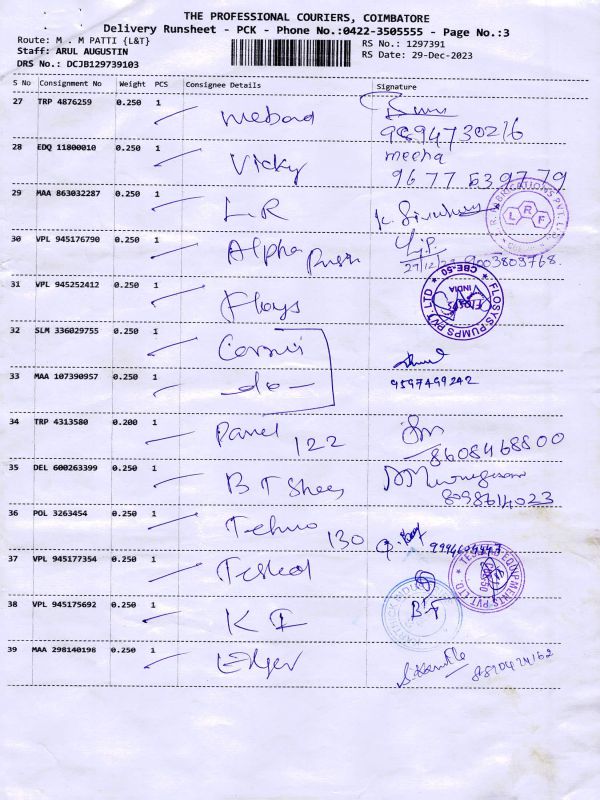 THE PROFESSIONAL COURIERS, COIMBATORE
Delivery Runsheet - PCK - Phone No.:0422-3505555 - Page No.:3
Route: M . M PATTI {L&T}
RS No.: 1297391
Staff: ARUL AUGUSTIN
RS Date: 29-Dec-2023
DRS No.: DCJB129739103
S No Consignment No Weight PCS Consignee Details Signature
27 TRP 4876259 0.250 1
9894730216
28 EDQ 11800010 0.250 1 Vicky meena
9677539779
29 MAA 863032287 0.250 1 L R
L R F
30 VPL 945176790 0.250 1 Alpha
9003809768.
31 VPL 945252412 0.250 1 Floys
FLOSYS PUMPS PVT. LTD
CBE-50
INDIA
32 SLM 336029755 0.250 1
33 MAA 107390957 0.250 1 - do -
9597499242
34 TRP 4313580 0.200 1 Panel 122
8608468800
35 DEL 600263399 0.250 1 B T Shees
8098614023
36 POL 3263454 0.250 1 Tehno 130
37 VPL 945177354 0.250 1
EQUIPMENTS PVT. LTD
38 VPL 945175692 0.250 1 K I
39 MAA 298140198 0.250 1 Edger